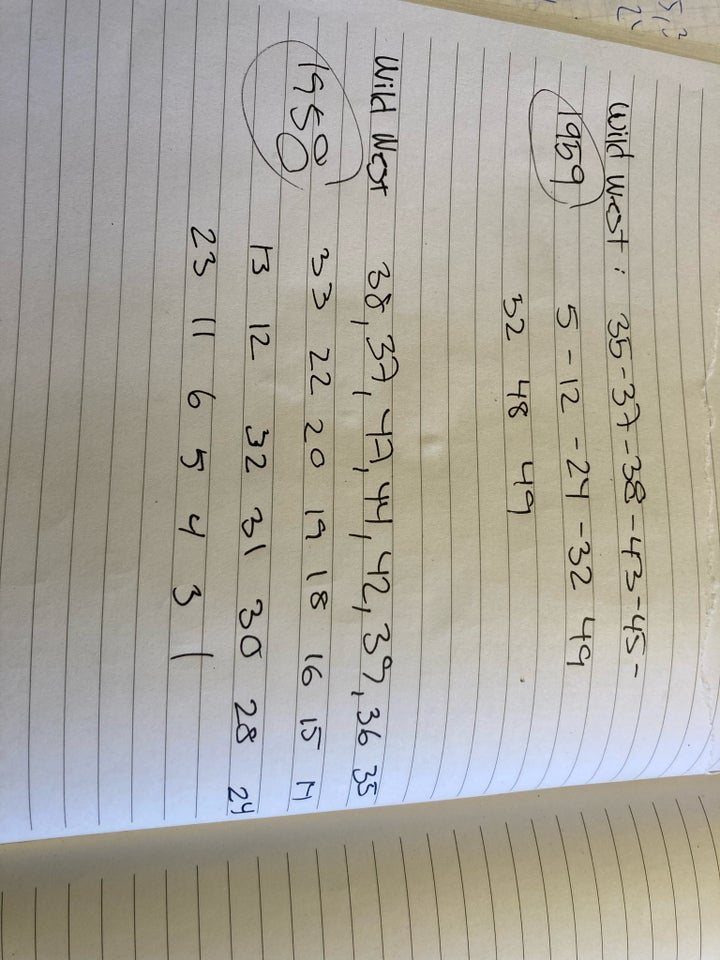 Wild West : 35-37-38-43-45-
1959 5-12-24-32 49
32 48 49
Wild West 38, 37, 47, 44, 42, 39, 36 35
1950 33 22 20 19 18 16 15 14
13 12 32 31 30 28 24
23 11 6 5 4 3 1